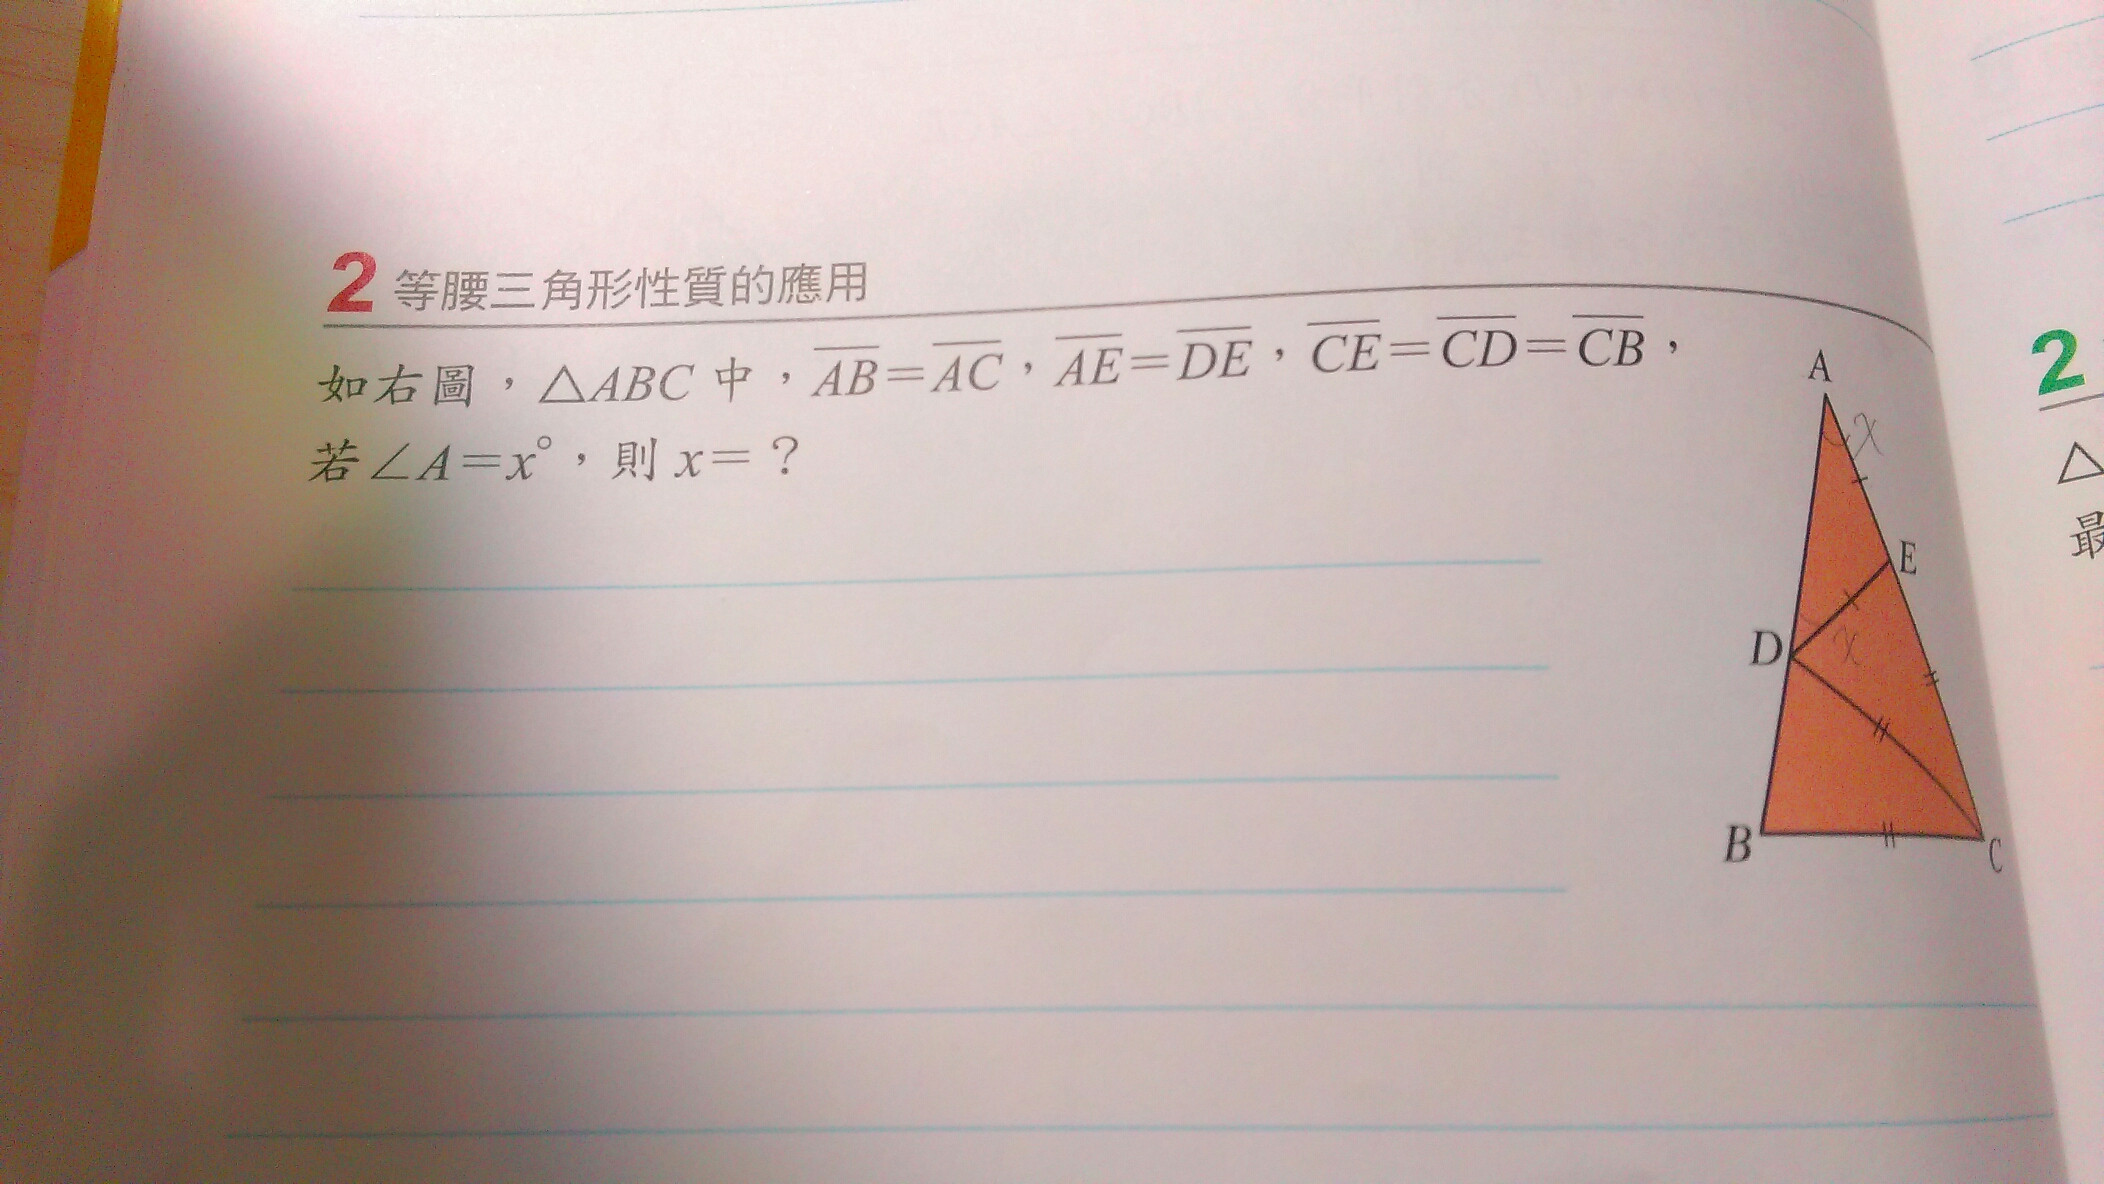 2 等腰三角形性質的應用
如右圖，△ABC中，AB=AC，AE=DE，CE=CD=CB，
若∠A=x°，則x=？
A
x
E
x
D
B
C
2
△
最